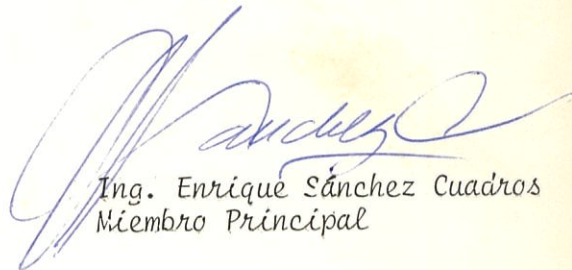 Sanchez
Ing. Enrique Sánchez Cuadros
Miembro Principal